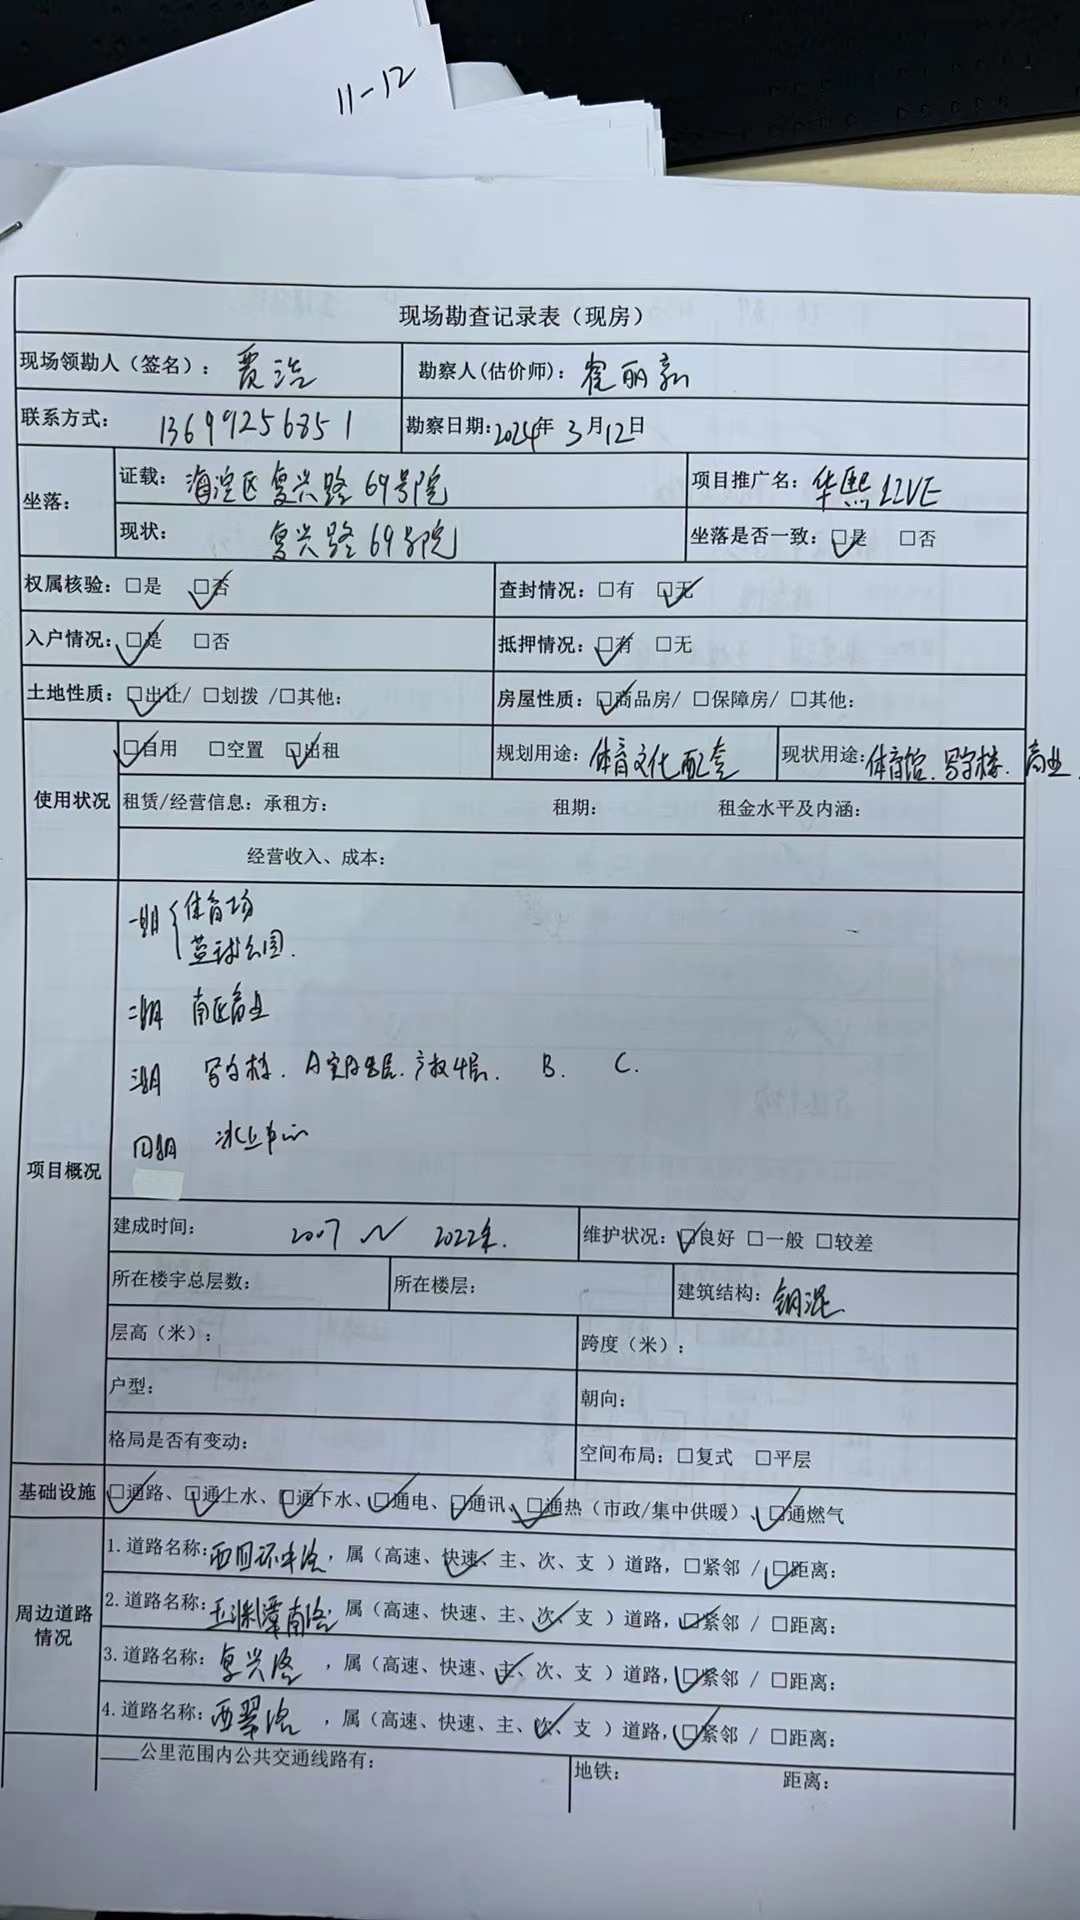 11-12
现场勘查记录表（现房）
现场领勘人（签名）： 贾浩 勘察人(估价师)： 崔丽新
联系方式： 13699256851 勘察日期:2024年 3月12日
坐落： 证载： 海淀区复兴路69号院 项目推广名： 华熙LIVE
现状： 复兴路69号院 坐落是否一致：☑是 □否
权属核验：□是 ☑否 查封情况：□有 ☑无
入户情况：☑是 □否 抵押情况：☑有 □无
土地性质：☑出让/ □划拨 /□其他: 房屋性质：☑商品房/ □保障房/ □其他:
使用状况 ☑自用 □空置 ☑出租 规划用途： 体育文化配套 现状用途： 体育馆、写字楼、商业
租赁/经营信息：承租方： 租期： 租金水平及内涵：
经营收入、成本：
项目概况
一期 { 体育场
篮球公园.
二期 南区商业
三期 写字楼. A 层. 4层. B. C.
四期 冰上中心
建成时间： 2007 ~ 2022年. 维护状况：☑良好 □一般 □较差
所在楼宇总层数： 所在楼层： 建筑结构： 钢混
层高（米）： 跨度（米）：
户型： 朝向：
格局是否有变动： 空间布局：□复式 □平层
基础设施 ☑通路、☑通上水、☑通下水、☑通电、☑通讯、☑通热（市政/集中供暖）、☑通燃气
周边道路情况
1.道路名称：西四环中路，属（高速、快速✓、主、次、支）道路，□紧邻 / ☑距离：
2.道路名称：玉渊潭南路，属（高速、快速、主、次✓、支）道路，☑紧邻 / □距离：
3.道路名称：复兴路，属（高速、快速、主✓、次、支）道路，☑紧邻 / □距离：
4.道路名称：西翠路，属（高速、快速、主、次✓、支）道路，☑紧邻 / □距离：
____公里范围内公共交通线路有： 地铁： 距离：